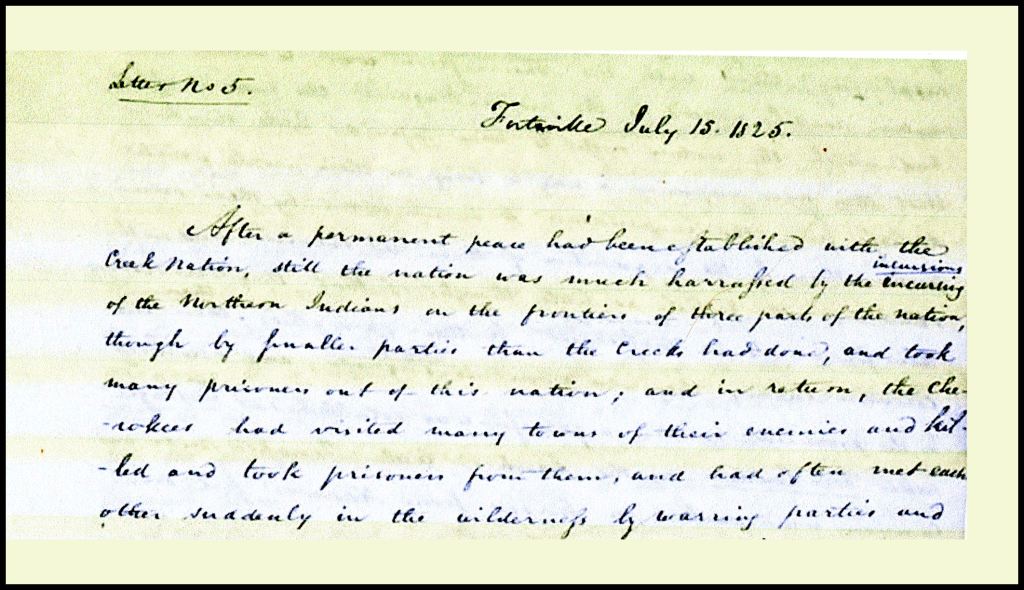 Letter No 5.
Fortville July 15. 1825.
After a permanent peace had been established with the
Creek Nation, still the nation was much harrassed by the incurring
incursions
of the Northern Indians on the frontiers of three parts of the nation,
though by smaller parties than the Creeks had done, and took
many prisoners out of this nation; and in return, the Che-
-rokees had visited many towns of their enemies and kil-
-led and took prisoners from them, and had often met each
other suddenly in the wilderness by warring parties and